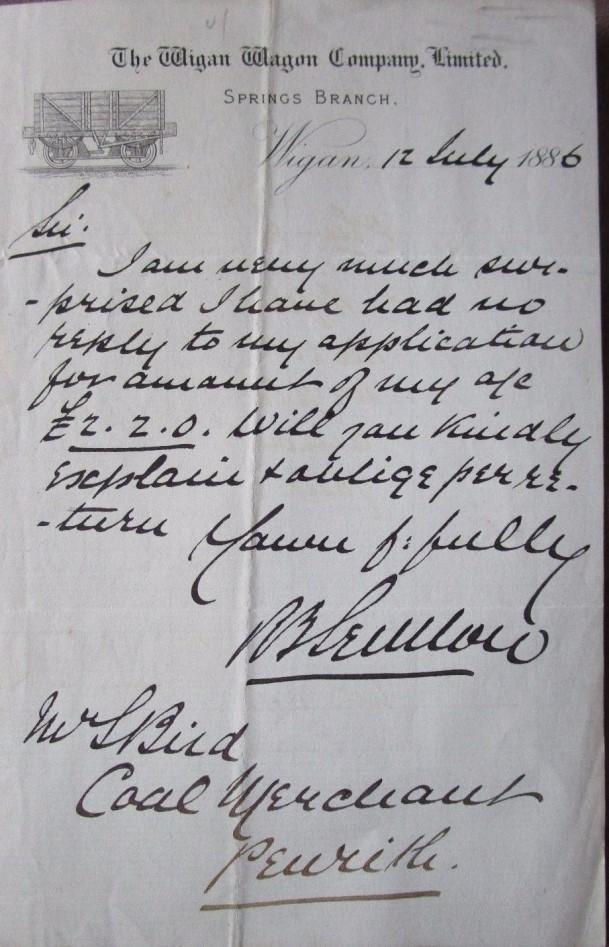 The Wigan Wagon Company, Limited.
Springs Branch.
Wigan, 12 July 1886
Sir.
I am very much sur-
-prised I have had no
reply to my application
for amount of my a/c
£2.2.0. Will you Kindly
explain & oblige per re-
-turn Yours f:fully
Mr S Bird
Coal Merchant
Penrith.